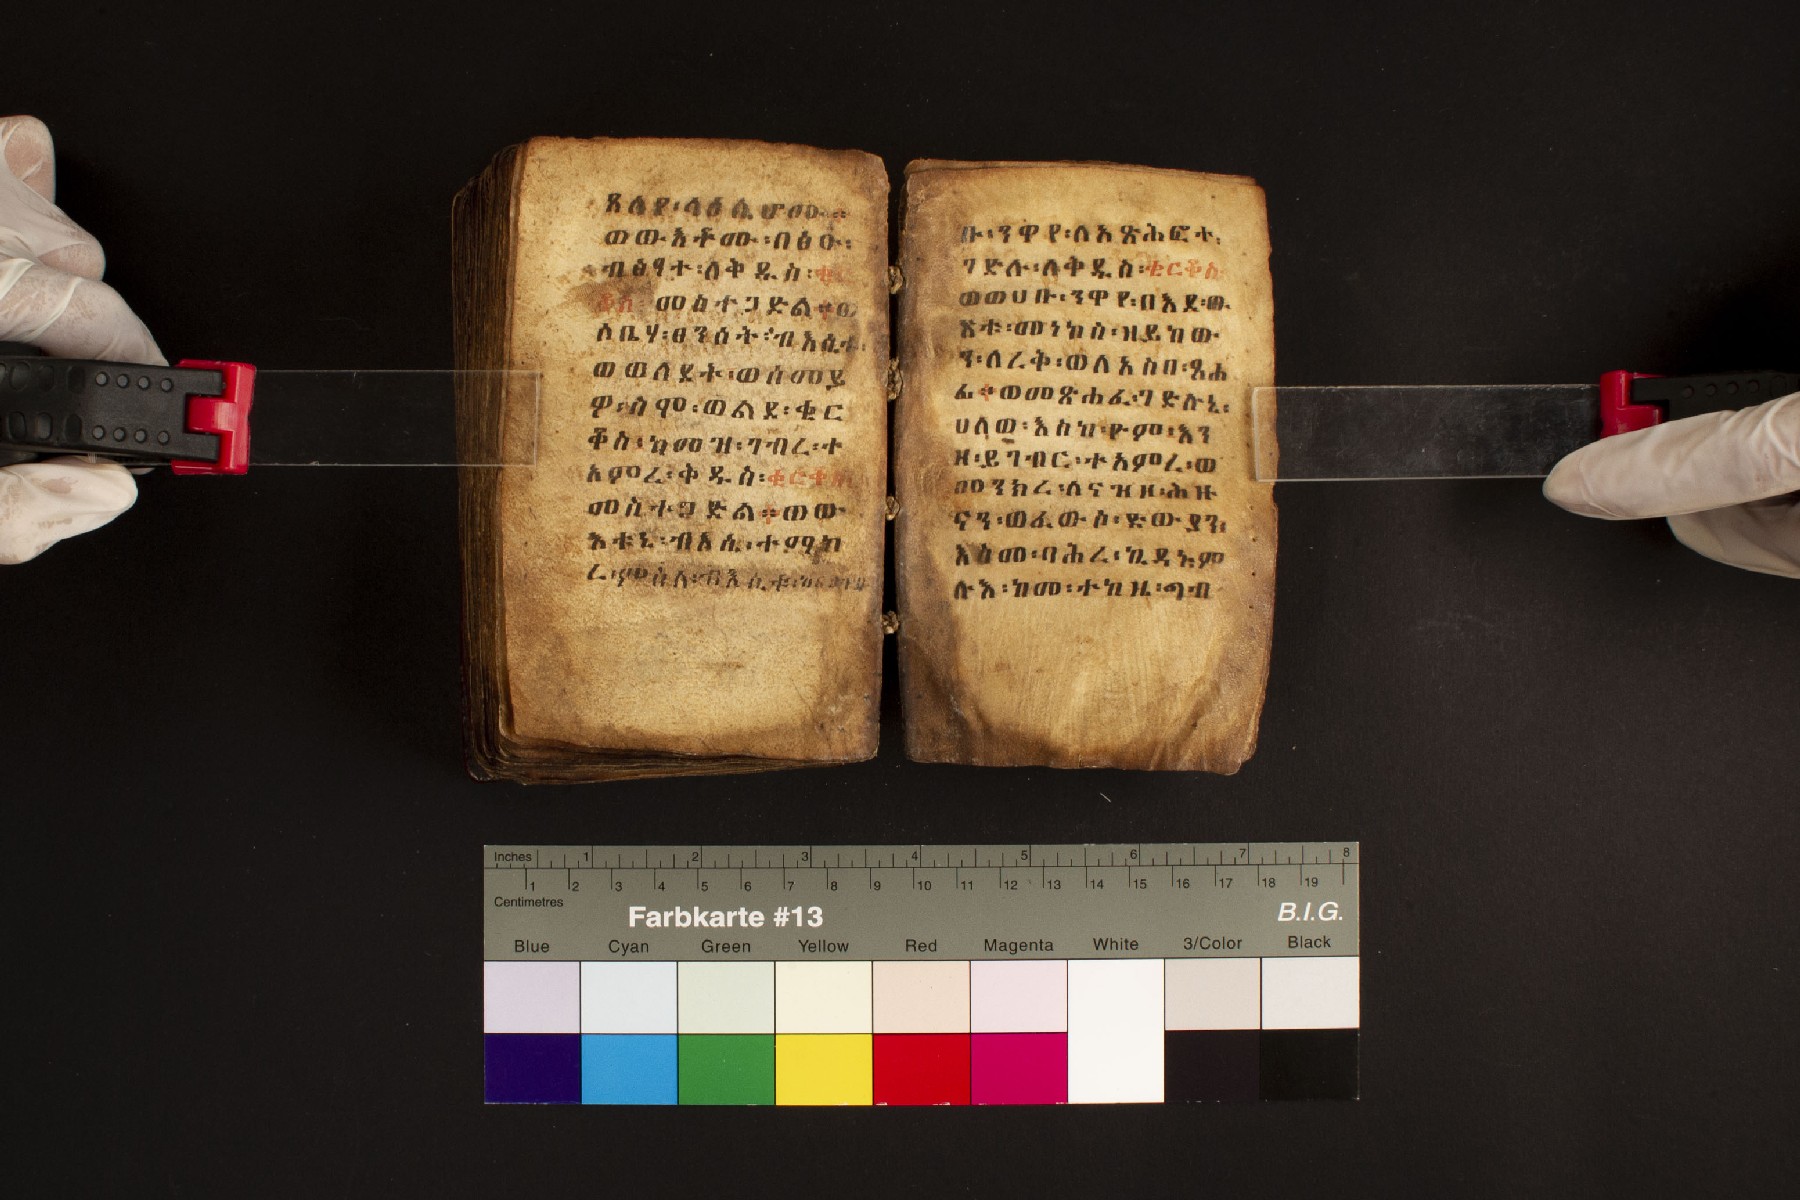 ጸለየ፡ላዕሌሆሙ።
ወውእቶሙ፡በፅዑ፡
ብፅዓተ፡ለቅዱስ፡ቂር
ቆስ፡መስተጋድል።ወ
ሶቤሃ፡ፀንሰት፡ብእሲቱ፡
ወወለደት፡ወሰመየ
ዎ፡ስሞ፡ወልደ፡ቂር
ቆስ፡ከመዝ፡ገብረ፡ተ
አምረ፡ቅዱስ፡ቂርቆስ፡
መስተጋድል።ወው
እቱኒ፡ብእሲ፡ተማከ
ረ፡ምስለ፡ብእሲቱ፡
ቡ፡ንዋየ፡ለአጽሕፎተ፡
ገድሉ፡ለቅዱስ፡ቂርቆስ
ወወሀቡ፡ንዋየ፡በእደ፡ው
እቱ፡መነኮስ፡ዘይከው
ን፡ለረቅ፡ወለአስበ፡ጸሐ
ፊ።ወመጽሐፈ፡ገድሉኒ፡
ሀለወ፡እስከ፡ዮም፡እን
ዘ፡ይገብር፡ተአምረ፡ወ
መንክረ፡ለናዝዞ፡ሕዙ
ናን፡ወፈውሶ፡ድውያን፡
እስመ፡ባሕረ፡ኪዳኑ፡ም
ሉእ፡ከመ፡ተከዚ፡ግብ
Inches 1 2 3 4 5 6 7 8
1 2 3 4 5 6 7 8 9 10 11 12 13 14 15 16 17 18 19
Centimetres
Farbkarte #13
B.I.G.
Blue Cyan Green Yellow Red Magenta White 3/Color Black